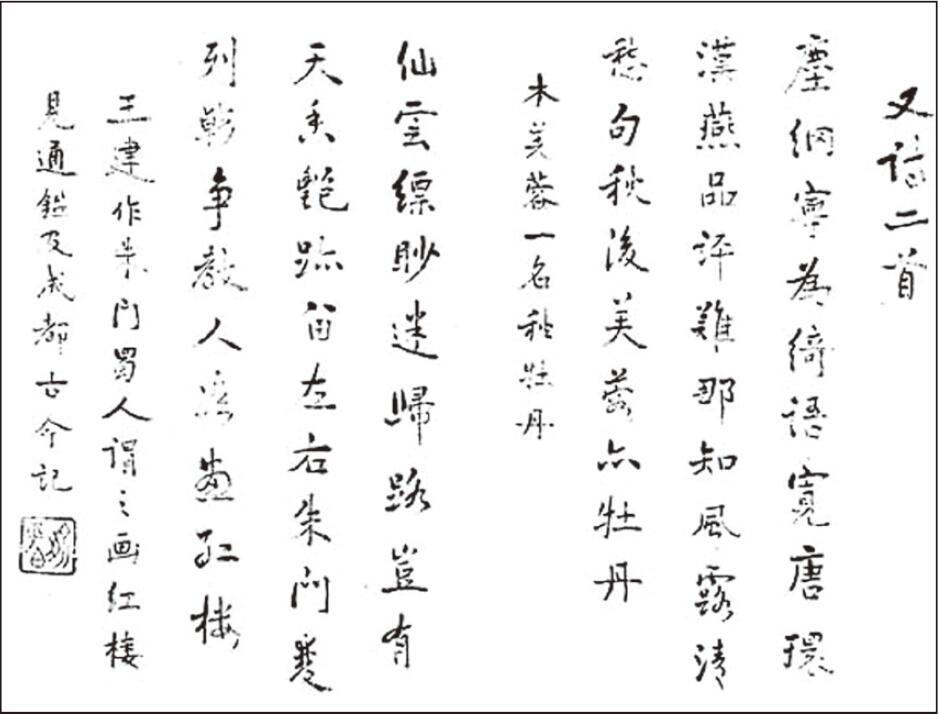 又詩二首
塵網寧為綺語寬唐環
漢燕品評難那知風露清
愁句秋後芙蓉亦牡丹
木芙蓉一名秋牡丹
仙雲縹眇迷歸路豈有
天香豔跡留左右朱門雙
列戟争教人畫紅樓
王建作朱門蜀人謂之画红楼
見通鑑及成都古今記